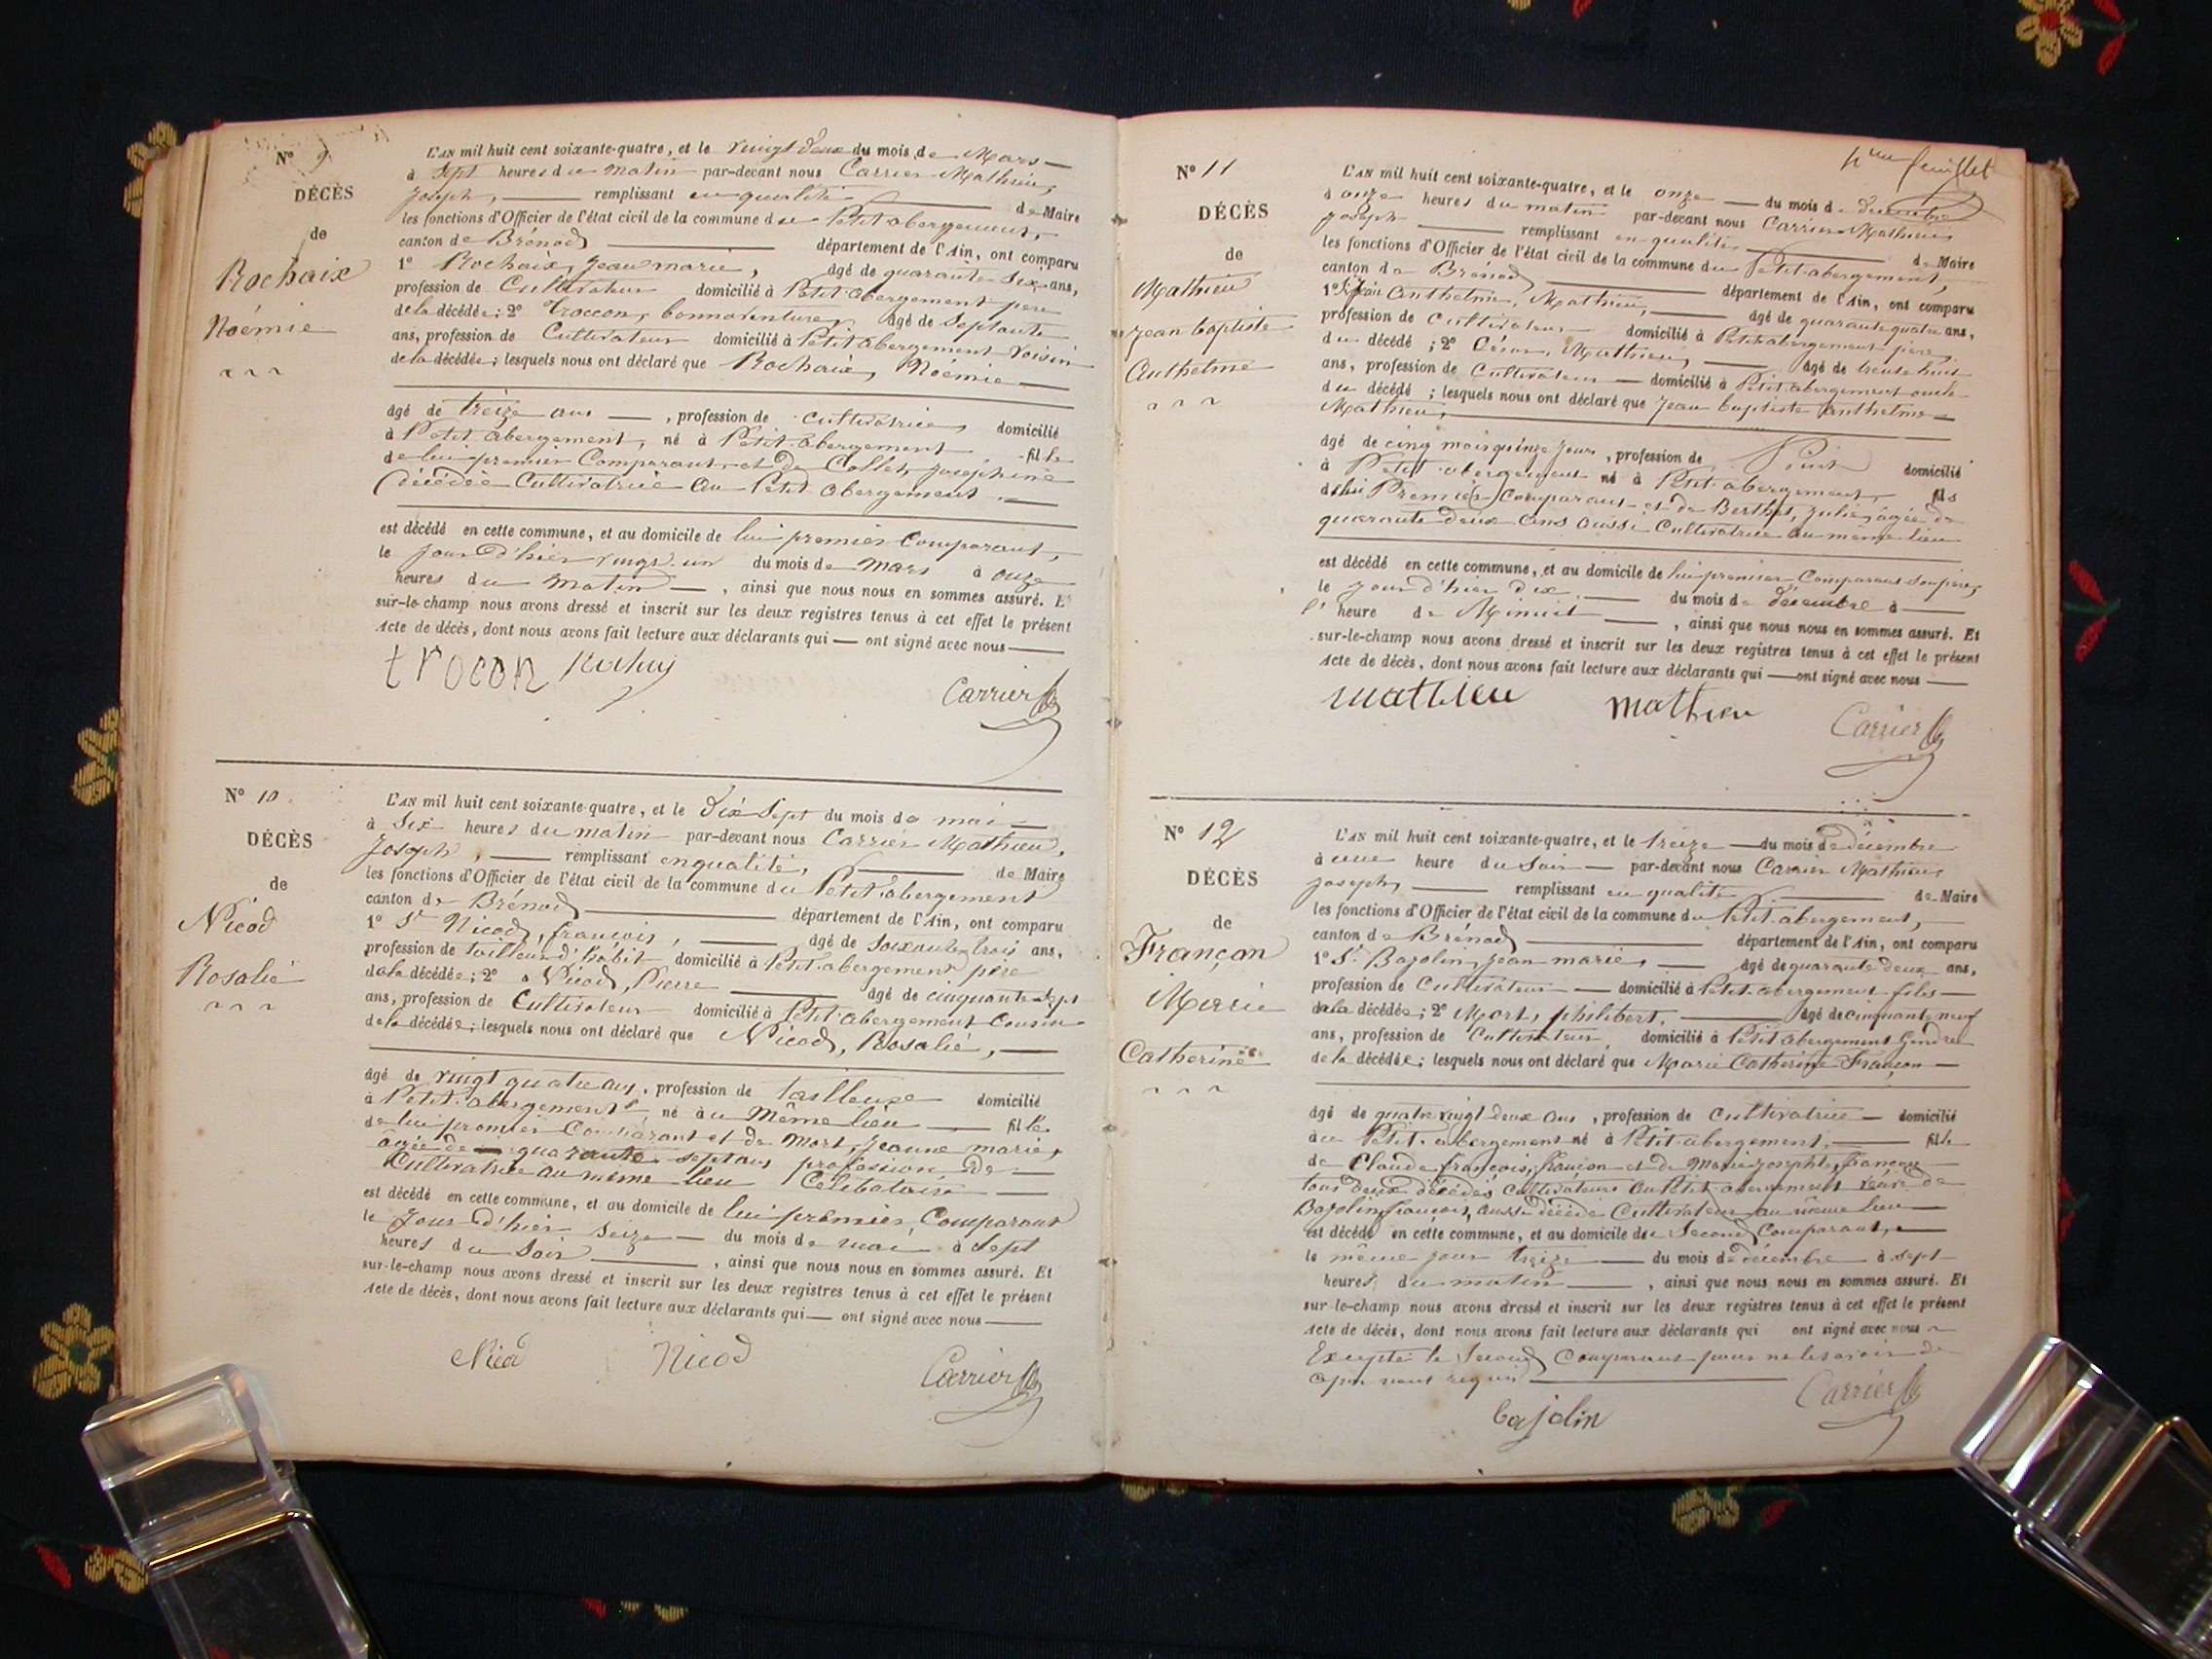 N° 9
DÉCÈS
de
Rochaix
Noémie
L'AN mil huit cent soixante-quatre, et le vingt deux du mois de Mars
à Sept heures du matin par-devant nous Carrier Mathieu,
Joseph, remplissant en qualité de Maire
les fonctions d'Officier de l'état civil de la commune du Petit abergement,
canton de Brénod département de l'Ain, ont comparu
1° Rochaix, Jean marie, âgé de quarante Six ans,
profession de Cultivateur domicilié à Petit abergement père
de la décédée; 2° Troccon, bonnaventure, âgé de Septante
ans, profession de Cultivateur domicilié à Petit abergement voisin
de la décédée; lesquels nous ont déclaré que Rochaix, Noémie
âgé de treize ans, profession de cultivatrice, domicilié
à Petit abergement, né à Petit abergement fille
de lui premier Comparant et de Collet, Josephine
décédée Cultivatrice au Petit abergement.
est décédé en cette commune, et au domicile de lui premier Comparant,
le jour d'hier vingt un du mois de mars à onze
heures du matin, ainsi que nous nous en sommes assuré. Et
sur-le-champ nous avons dressé et inscrit sur les deux registres tenus à cet effet le présent
Acte de décès, dont nous avons fait lecture aux déclarants qui — ont signé avec nous
trocon Carrier
N° 10
DÉCÈS
de
Nicod
Rosalie
L'AN mil huit cent soixante-quatre, et le Dix Sept du mois de mai
à Six heures du matin par-devant nous Carrier Mathieu,
Joseph, remplissant en qualité, de Maire
les fonctions d'Officier de l'état civil de la commune du Petit abergement
canton de Brénod département de l'Ain, ont comparu
1° Sr Nicod, francois, âgé de Soixante trois ans,
profession de tailleur d'habit domicilié à Petit abergement père
de la décédée; 2° Nicod, Pierre âgé de cinquante Sept
ans, profession de Cultivateur domicilié à Petit abergement Cousin
de la décédée; lesquels nous ont déclaré que Nicod, Rosalie,
âgé de vingt quatre ans, profession de tailleuse domicilié
à Petit abergement, né au Même lieu fille
de lui premier Comparant et de Mort, Jeanne marie,
âgée de quarante sept ans profession de
Cultivatrice au même lieu Célibataire
est décédé en cette commune, et au domicile de lui premier Comparant
le Jour d'hier Seize du mois de mai à Sept
heures du Soir, ainsi que nous nous en sommes assuré. Et
sur-le-champ nous avons dressé et inscrit sur les deux registres tenus à cet effet le présent
Acte de décès, dont nous avons fait lecture aux déclarants qui — ont signé avec nous
Nicod Carrier
feuillet
N° 11
DÉCÈS
de
Mathieu
Jean baptiste
Anthelme
L'AN mil huit cent soixante-quatre, et le onze du mois de décembre
à onze heures du matin par-devant nous Carrier Mathieu
Joseph remplissant en qualité de Maire
les fonctions d'Officier de l'état civil de la commune du Petit abergement,
canton de Brénod département de l'Ain, ont comparu
1° Anthelme, Mathieu, âgé de quarante quatre ans,
profession de cultivateur domicilié à Petit abergement père
du décédé; 2° César, Mathieu, âgé de trente huit
ans, profession de Cultivateur domicilié à Petit abergement oncle
du décédé; lesquels nous ont déclaré que Jean baptiste Anthelme
Mathieu,
âgé de cinq mois quinze jours, profession de domicilié
à Petit abergement né à Petit abergement, fils
de lui Premier Comparant et de Berthet, Julie, âgée de
quarante deux ans aussi Cultivatrice au même lieu
est décédé en cette commune, et au domicile de lui premier Comparant Son père,
le jour d'hier dix. du mois de décembre à
l'heure de Minuit, ainsi que nous nous en sommes assuré. Et
sur-le-champ nous avons dressé et inscrit sur les deux registres tenus à cet effet le présent
Acte de décès, dont nous avons fait lecture aux déclarants qui — ont signé avec nous
mathieu mathieu Carrier
N° 12
DÉCÈS
de
Françon
Marie
Catherine
L'AN mil huit cent soixante-quatre, et le treize du mois de décembre
à une heure du Soir par-devant nous Carrier Mathieu
Joseph, remplissant en qualité de Maire
les fonctions d'Officier de l'état civil de la commune du Petit abergement,
canton de Brénod département de l'Ain, ont comparu
1° Sr Bajolin, Jean marie, âgé de quarante deux ans,
profession de Cultivateur domicilié à Petit abergement fils
de la décédée; 2° Mort, philibert, âgé de cinquante neuf
ans, profession de Cultivateur, domicilié à Petit abergement Gendre
de la décédée; lesquels nous ont déclaré que Marie Catherine Françon
âgé de quatre vingt deux ans, profession de Cultivatrice domicilié
au Petit abergement né à Petit abergement, fille
de Claude françois, françon et de Marie Josephte, françon
tous deux décédés cultivateurs au Petit abergement veuve de
Bajolin, francois, aussi décédé Cultivateur au même lieu
est décédé en cette commune, et au domicile du Second Comparant,
le même jour treize du mois de décembre à sept
heures du matin, ainsi que nous nous en sommes assuré. Et
sur-le-champ nous avons dressé et inscrit sur les deux registres tenus à cet effet le présent
Acte de décès, dont nous avons fait lecture aux déclarants qui ont signé avec nous
Excepté le Second Comparant pour ne le savoir de
ce requis
bajolin Carrier